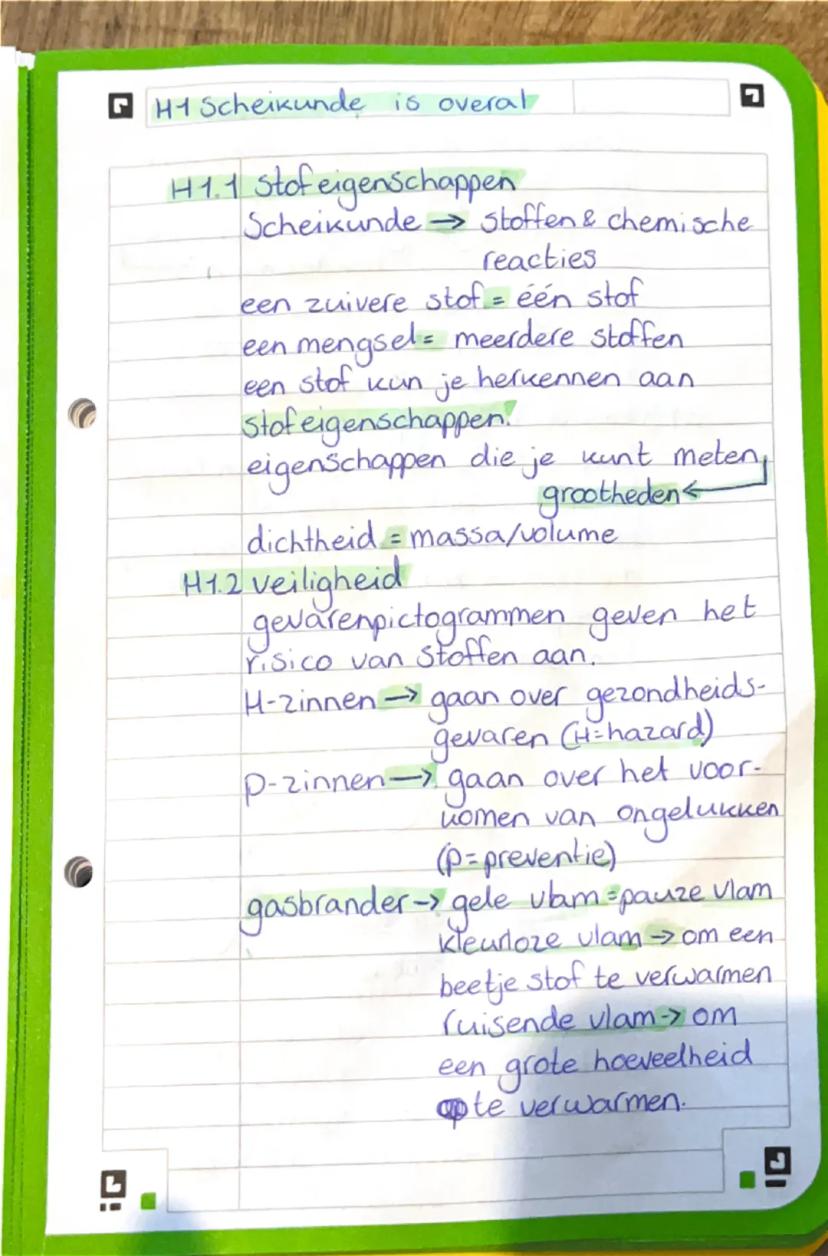 H1 Scheikunde is overal
H1.1 Stofeigenschappen
Scheikunde → stoffen & chemische
reacties
een zuivere stof = één stof
een mengsel = meerdere stoffen
een stof kun je herkennen aan
stofeigenschappen.
eigenschappen die je kunt meten
grootheden ←
dichtheid = massa/volume
H1.2 veiligheid
gevarenpictogrammen geven het
risico van stoffen aan.
H-zinnen → gaan over gezondheids-
gevaren (H=hazard)
p-zinnen → gaan over het voor-
komen van ongelukken
(p=preventie)
gasbrander → gele vlam = pauze vlam
kleurloze vlam → om een
beetje stof te verwarmen
ruisende vlam → om
een grote hoeveelheid
te verwarmen.